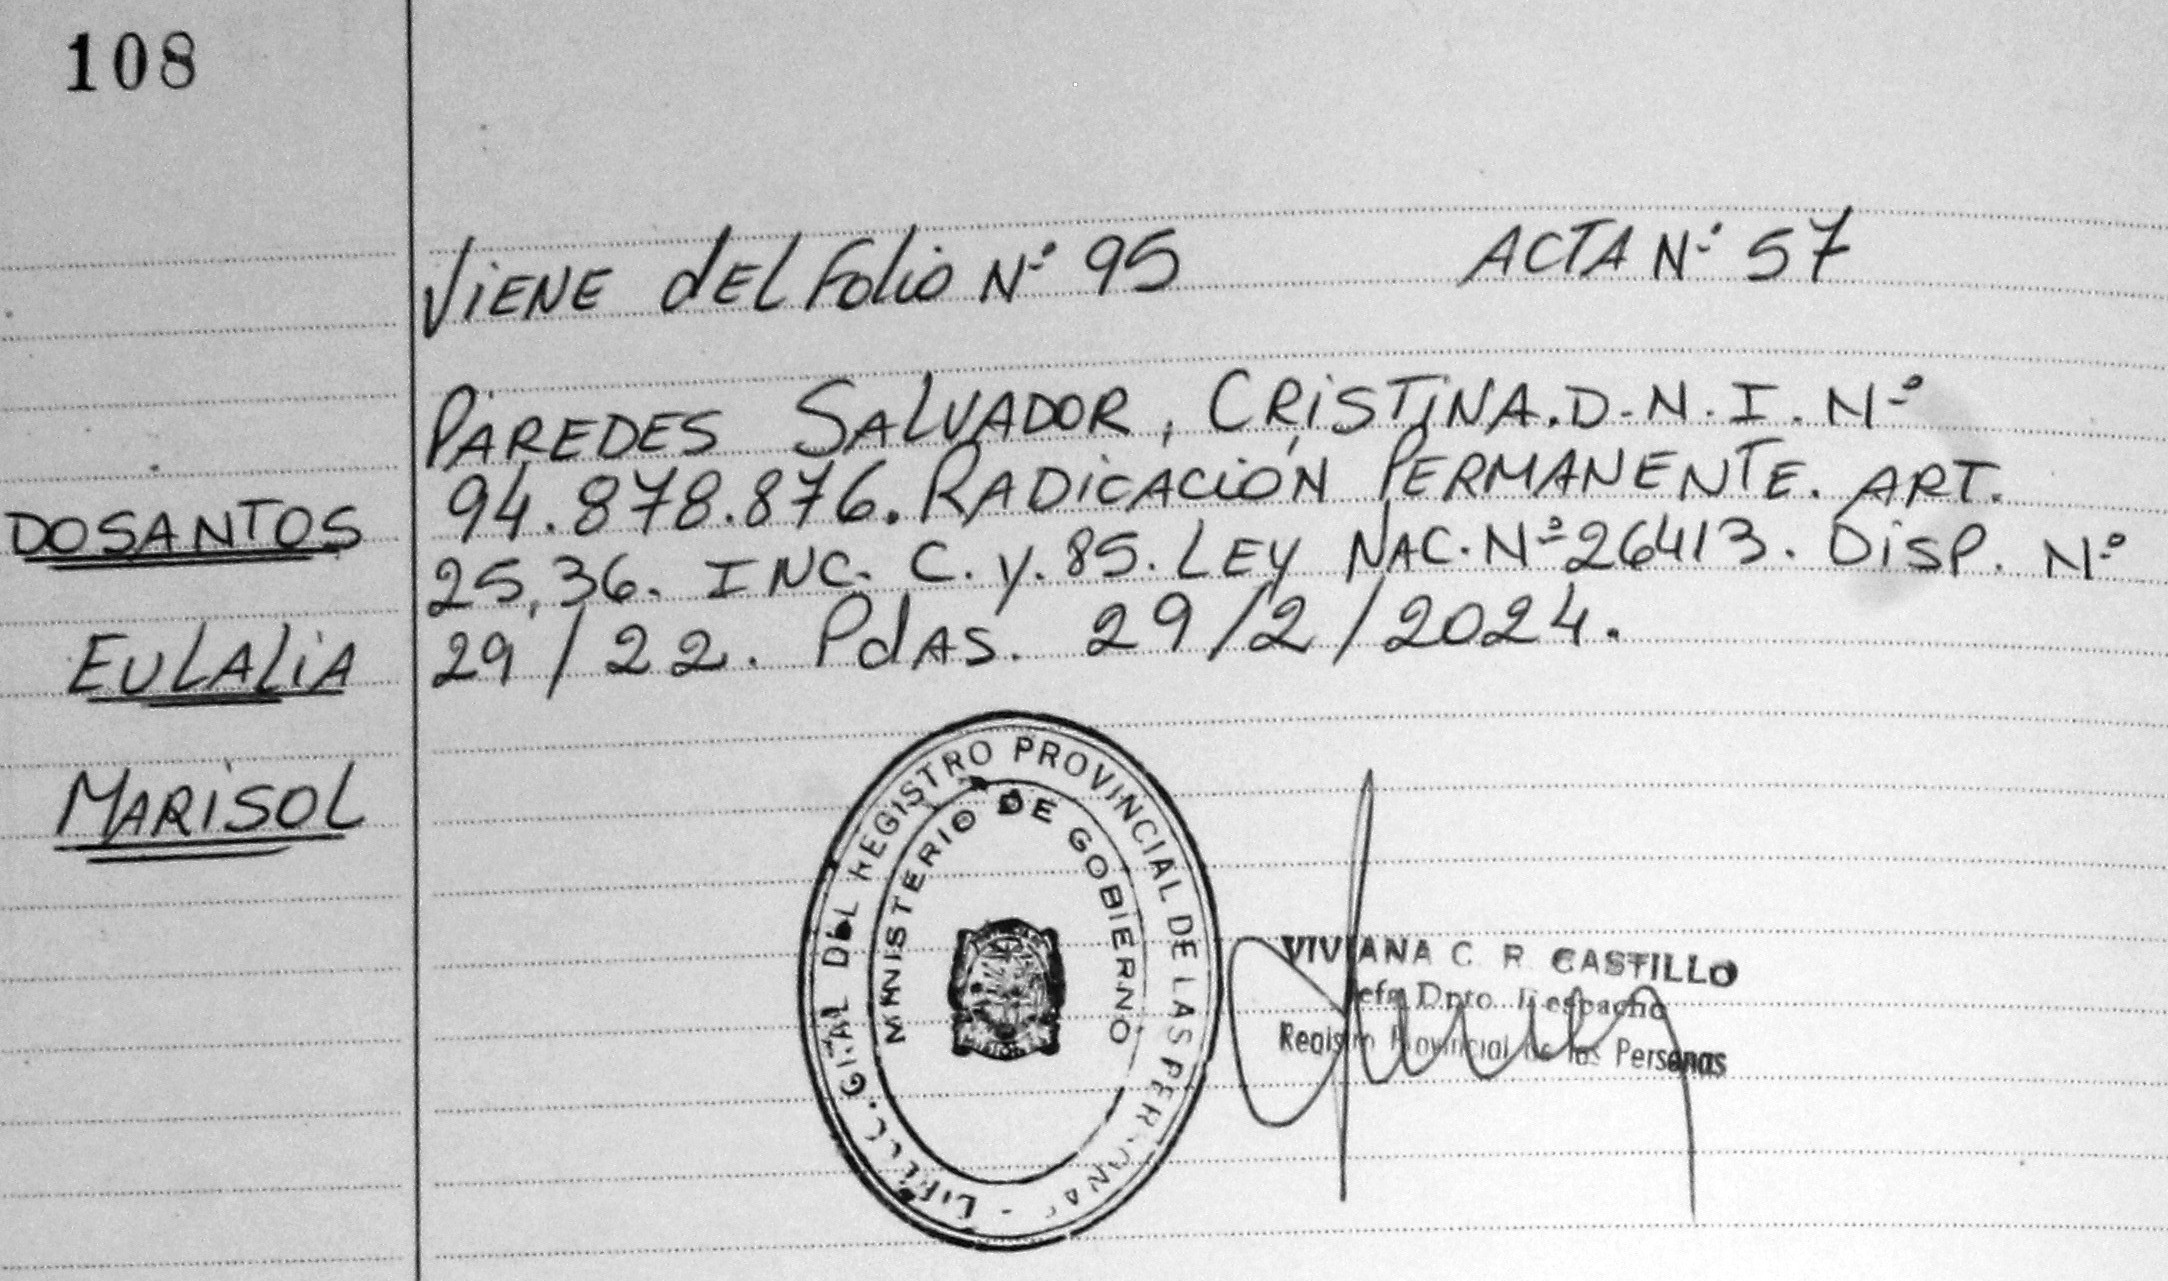 108
VIENE dEL Folio Nº 95 ACTA Nº 57
PAREDES SALVADOR, CRISTINA. D.N.I. Nº
94.878.876. RADICACIÓN PERMANENTE. ART.
25,36. INC. C. y. 85. LEY NAC. Nº 26413. DISP. Nº
29/22. PdAS. 29/2/2024.
DOSANTOS
EULALIA
MARISOL
REGISTRO PROVINCIAL DE LAS PERSONAS
MINISTERIO DE GOBIERNO
VIVIANA C. R. CASTILLO
Jefa Dpto. Despacho
Registro Provincial de las Personas